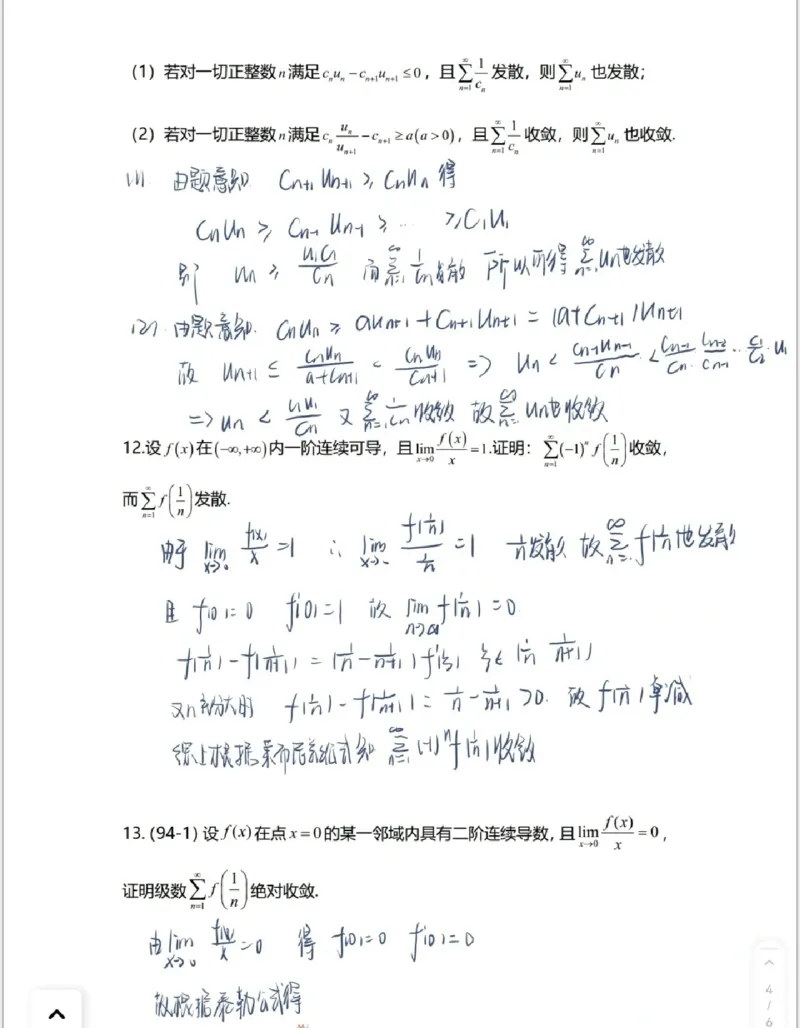 (1) 若对一切正整数 n 满足 cₙuₙ − cₙ₊₁uₙ₊₁ ≤ 0，且 ∑_{n=1}^{∞} 1/cₙ 发散，则 ∑_{n=1}^{∞} uₙ 也发散；
(2) 若对一切正整数 n 满足 cₙ uₙ/uₙ₊₁ − cₙ₊₁ ≥ a(a>0)，且 ∑_{n=1}^{∞} 1/cₙ 收敛，则 ∑_{n=1}^{∞} uₙ 也收敛.
(1) 由题意知 Cₙ₊₁Uₙ₊₁ ≥ CₙUₙ 得
CₙUₙ ≥ Cₙ₋₁Uₙ₋₁ ≥ … ≥ C₁U₁
则 Uₙ ≥ U₁C₁/Cₙ 而 ∑_{n=1}^{∞} 1/Cₙ 发散 所以可得 ∑_{n=1}^{∞} Uₙ 也发散
(2). 由题意知. CₙUₙ ≥ aUₙ₊₁ + Cₙ₊₁Uₙ₊₁ = (a+Cₙ₊₁)Uₙ₊₁
故 Uₙ₊₁ ≤ CₙUₙ/(a+Cₙ₊₁) < CₙUₙ/Cₙ₊₁ => Uₙ < Cₙ₋₁Uₙ₋₁/Cₙ < Cₙ₋₁/Cₙ · Cₙ₋₂/Cₙ₋₁ ·· C₁/C₂ · U₁
=> Uₙ < C₁U₁/Cₙ 又 ∑_{n=1}^{∞} 1/Cₙ 收敛 故 ∑_{n=1}^{∞} Uₙ 也收敛
12.设 f(x) 在 (−∞,+∞) 内一阶连续可导，且 lim_{x→0} f(x)/x = 1.证明：∑_{n=1}^{∞} (−1)ⁿ f(1/n) 收敛，
而 ∑_{n=1}^{∞} f(1/n) 发散.
由于 lim_{x→0} f(x)/x = 1 ∴ lim_{x→∞} f(1/n)/(1/n) = 1 1/n 发散 故 ∑_{n=1}^{∞} f(1/n) 也发散
且 f(0)=0 f'(0)=1 故 lim_{n→∞} f(1/n) = 0
f(1/n) − f(1/(n+1)) = (1/n − 1/(n+1)) f'(ξ) ξ∈(1/n 1/(n+1))
又n充分大时 f(1/n) − f(1/(n+1)) = 1/n − 1/(n+1) > 0. 故 f(1/n) 单减
综上根据莱布尼兹公式知 ∑_{n=1}^{∞} (−1)ⁿ f(1/n) 收敛
13. (94-1) 设 f(x) 在点 x=0 的某一邻域内具有二阶连续导数，且 lim_{x→0} f(x)/x = 0，
证明级数 ∑_{n=1}^{∞} f(1/n) 绝对收敛.
由 lim_{x→0} f(x)/x = 0 得 f(0)=0 f'(0)=0
故根据泰勒公式得
4
/
6